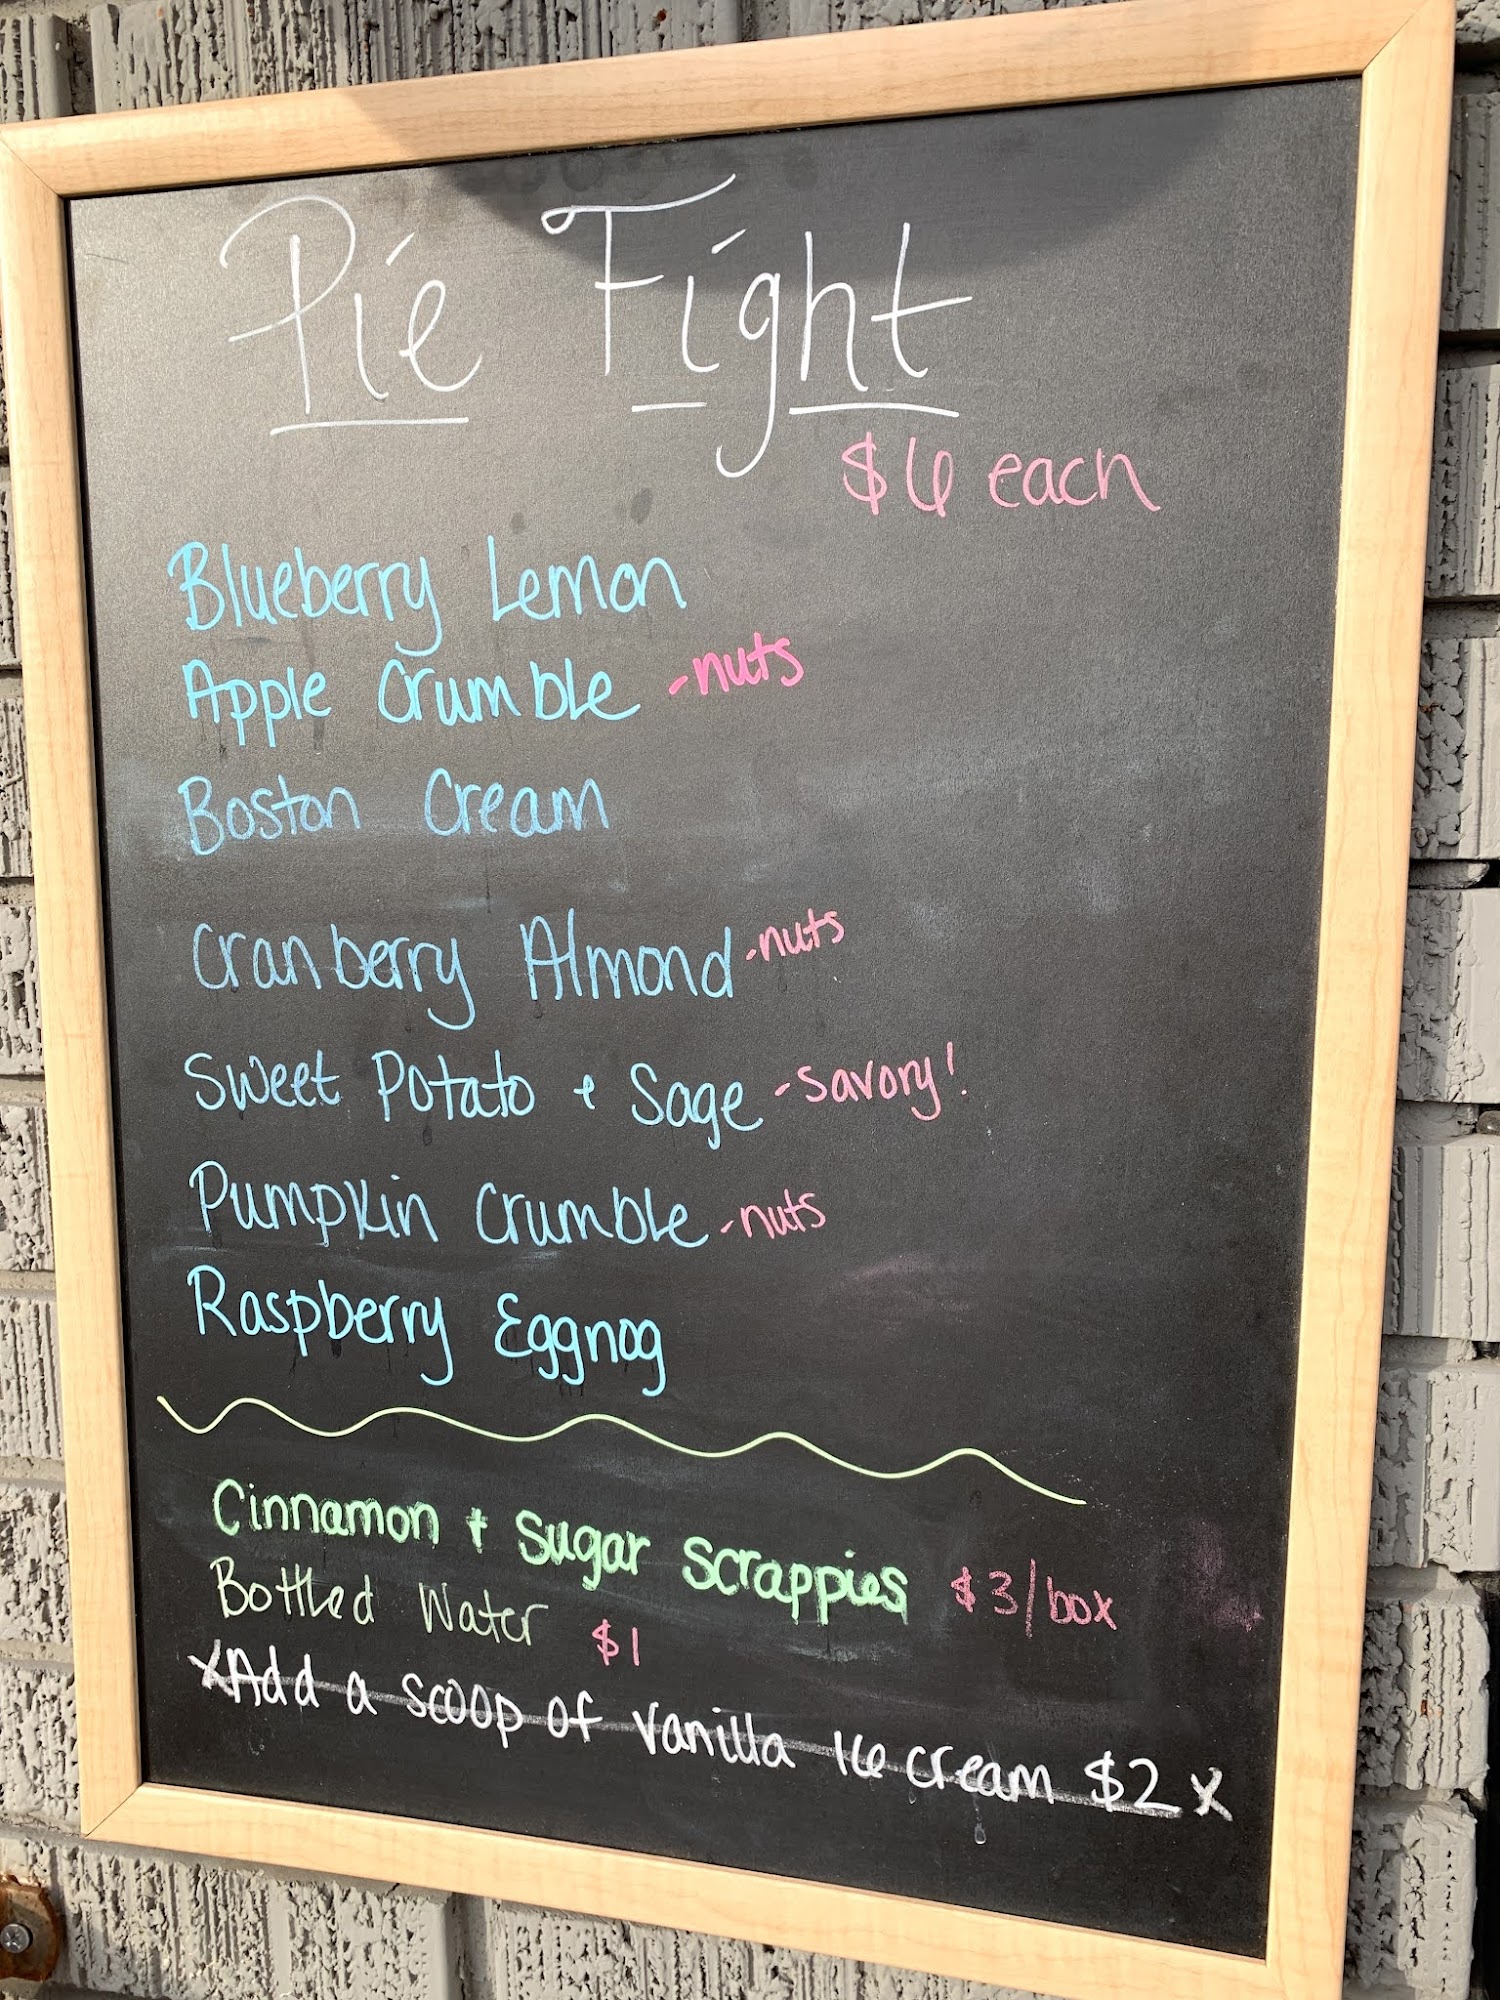 Pie Fight
$6 each
Blueberry Lemon
Apple Crumble -nuts
Boston Cream
Cranberry Almond -nuts
Sweet Potato + Sage -savory!
Pumpkin Crumble -nuts
Raspberry Eggnog
Cinnamon + Sugar Scrappies $3/box
Bottled Water $1
x Add a scoop of vanilla ice cream $2 x